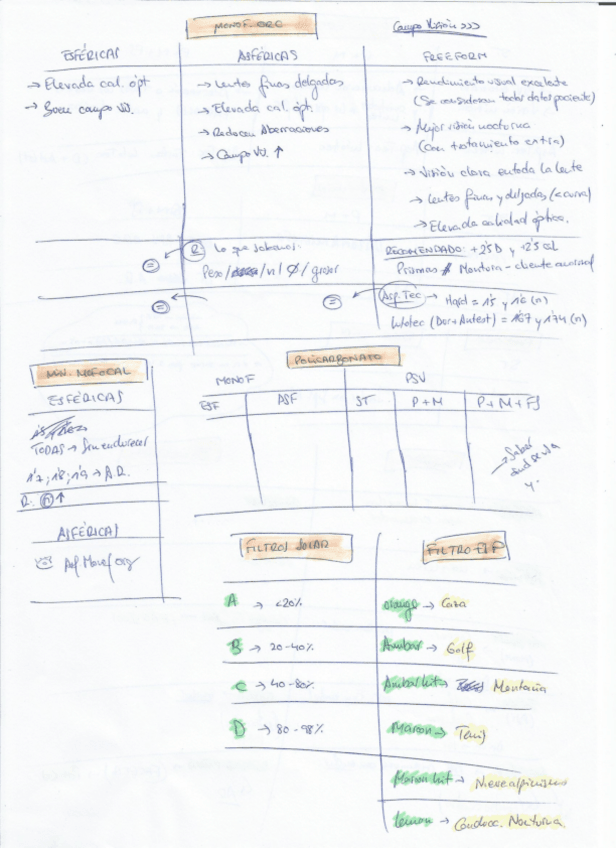 MONOF. ORG
Campo Visión >>>
ESFÉRICAS
→ Elevada cal. ópt
→ Buen campo VV.
ASFÉRICAS
→ Lentes finas delgadas
→ Elevada cal. ópt.
→ Reducen Aberraciones
→ Campo VV. ↑
FREEFORM
→ Rendimiento visual excelente
(Se consideran todos datos paciente)
→ Mejor visión nocturna
(Con tratamiento extra)
→ Visión clara en toda la lente
→ Lentes finas y delgadas (< curva)
→ Elevada calidad óptica.
R: Lo que sabemos.
Peso/ /n/ Ø/ grosor
=
RECOMENDADO: +2'5D y +2'5 cil
Prismas Montura - cliente
=
=
Asf. Tec → Hard = 1'5 y 1'6 (n)
(Dor+Antest) = 1'67 y 1'74 (n)
MIN. MOFOCAL
ESFÉRICAS
TODAS → Sin endurecer
1'7; 1'8; 1'9 → A.R.
R. (n) ↑
ASFÉRICAS
Asf Monof org
POLICARBONATO
MONOF
PSV
ESF
ASF
ST
P+M
P+M+FS
→ Saber
FILTROS SOLAR
A → <20%
B → 20-40%
C → 40-80%
D → 80-98%
FILTRO ESP
orange → Caza
Ambar → Golf
Ambar kit → Montaña
Marron → Tenis
Marron kit → Nieve alpinismo
Lemon → Conducc. Nocturna.